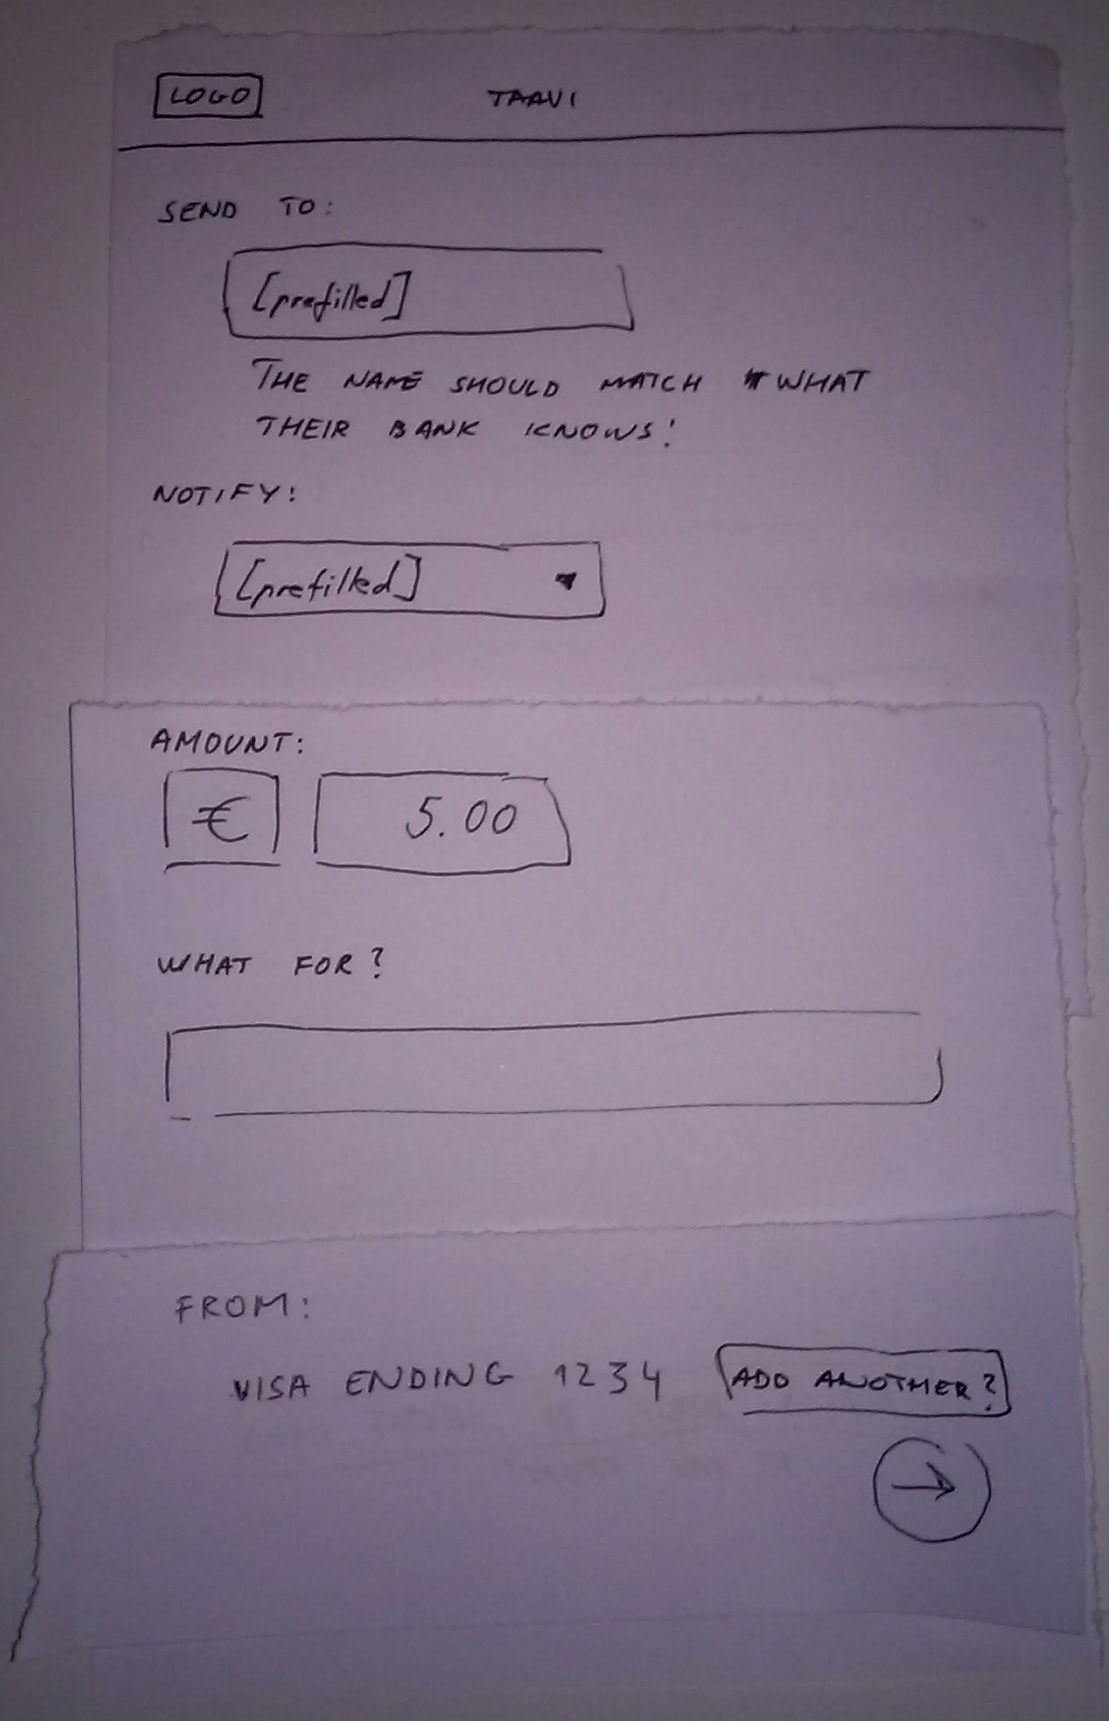 LOGO
TAAVI
SEND TO:
[prefilled]
THE NAME SHOULD MATCH WHAT
THEIR BANK KNOWS!
NOTIFY:
[prefilled]
AMOUNT:
€ 5.00
WHAT FOR?
FROM:
VISA ENDING 1234 ADD ANOTHER?